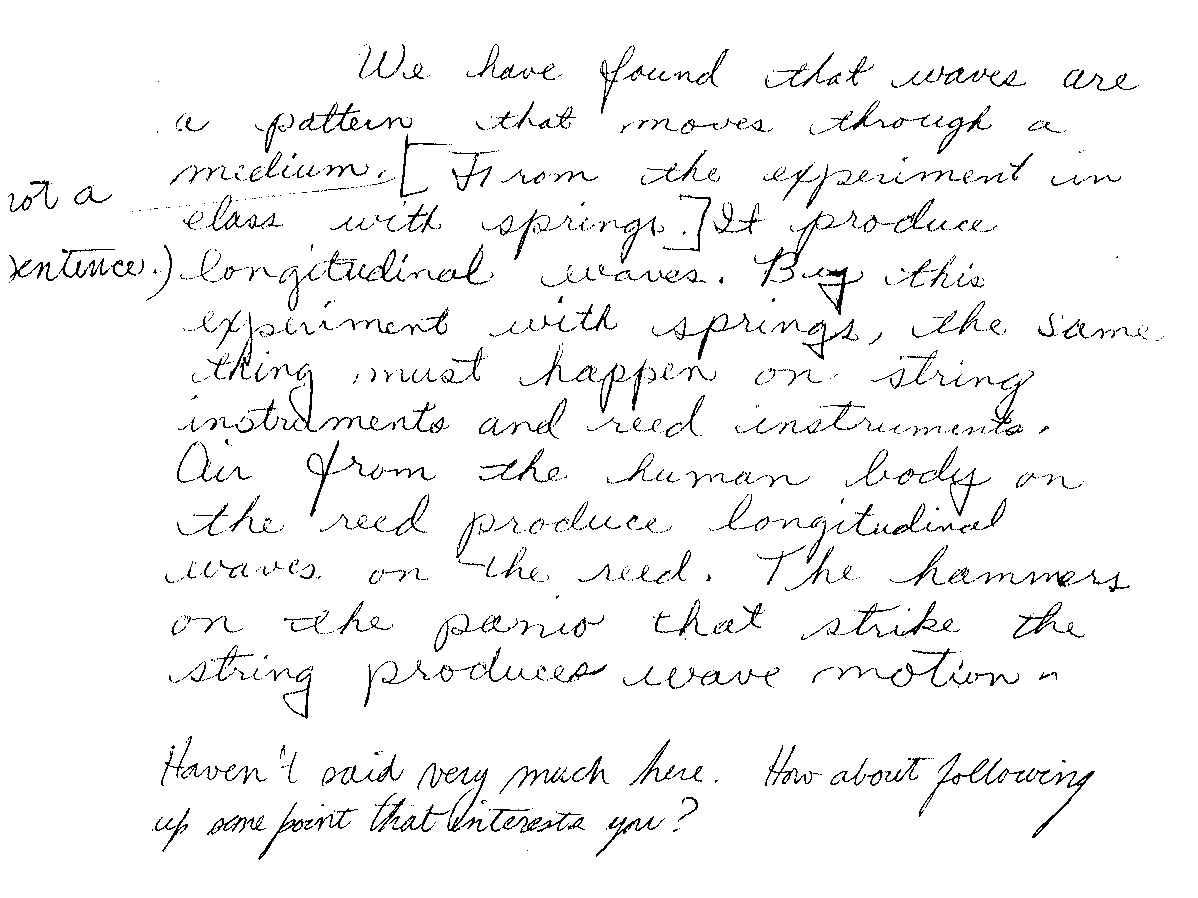 We have found that waves are
a pattern that moves through a
medium. [ From the experiment in
not a
class with springs.] It produce
sentence.) longitudinal waves. By this
experiment with springs, the same
thing must happen on string
instruments and reed instruments.
Air from the human body on
the reed produce longitudinal
waves on the reed. The hammers
on the panio that strike the
string produces wave motion.
Haven't said very much here. How about following
up some point that interests you?